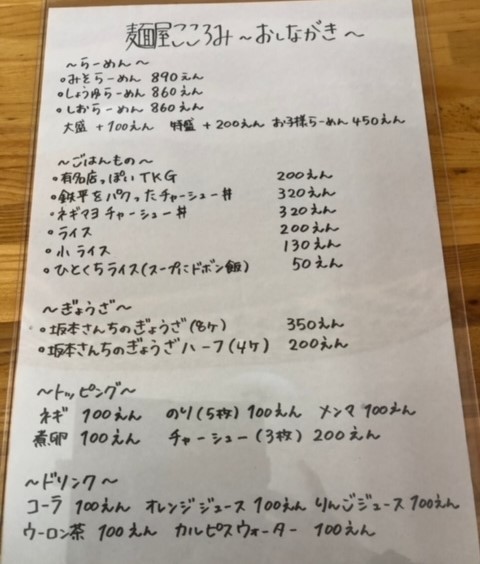 麺屋こころみ～おしながき～
～らーめん～
・みそらーめん 890えん
・しょうゆらーめん 860えん
・しおらーめん 860えん
大盛 +100えん 特盛 +200えん お子様らーめん 450えん
～ごはんもの～
・有名店っぽいTKG 200えん
・鉄平をパクったチャーシュー丼 320えん
・ネギマヨチャーシュー丼 320えん
・ライス 200えん
・小ライス 130えん
・ひとくちライス(スープにドボン飯) 50えん
～ぎょうざ～
・坂本さんちのぎょうざ(8ケ) 350えん
・坂本さんちのぎょうざハーフ(4ケ) 200えん
～トッピング～
ネギ 100えん のり(5枚) 100えん メンマ 100えん
煮卵 100えん チャーシュー(3枚) 200えん
～ドリンク～
コーラ 100えん オレンジジュース 100えん りんごジュース 100えん
ウーロン茶 100えん カルピスウォーター 100えん